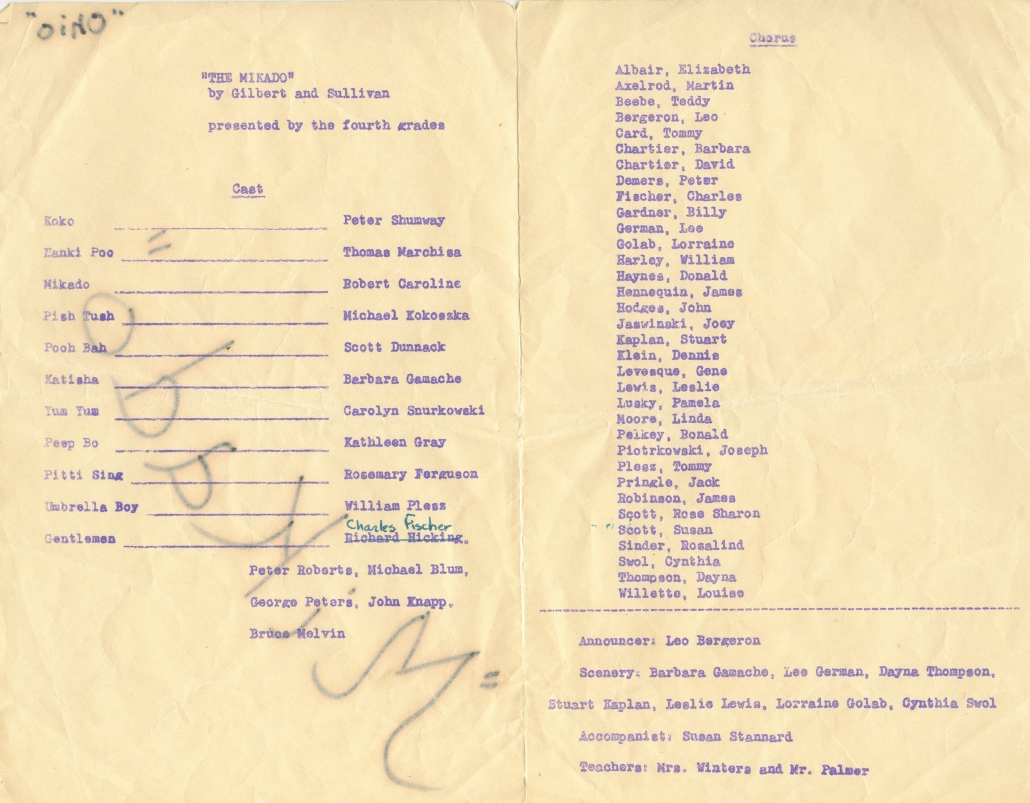 "THE MIKADO"
by Gilbert and Sullivan
presented by the fourth grades
Cast
Koko Peter Shumway
Nanki Poo Thomas Marchisa
Mikado Robert Caroline
Pish Tush Michael Kokoszka
Pooh Bah Scott Dunnack
Katisha Barbara Gamache
Yum Yum Carolyn Snurkowski
Peep Bo Kathleen Gray
Pitti Sing Rosemary Ferguson
Umbrella Boy William Plesz
Charles Fischer
Gentlemen Richard Hicking,
Peter Roberts, Michael Blum,
George Peters, John Knapp,
Bruce Melvin
Chorus
Albair, Elizabeth
Axelrod, Martin
Beebe, Teddy
Bergeron, Leo
Card, Tommy
Chartier, Barbara
Chartier, David
Demers, Peter
Fischer, Charles
Gardner, Billy
German, Lee
Golab, Lorraine
Harley, William
Haynes, Donald
Hennequin, James
Hodges, John
Jaswinski, Joey
Kaplan, Stuart
Klein, Dennis
Levesque, Gene
Lewis, Leslie
Lusky, Pamela
Moore, Linda
Pelkey, Ronald
Piotrkowski, Joseph
Plesz, Tommy
Pringle, Jack
Robinson, James
Scott, Rose Sharon
Scott, Susan
Sinder, Rosalind
Swol, Cynthia
Thompson, Dayna
Willette, Louise
Announcer: Leo Bergeron
Scenery: Barbara Gamache, Lee German, Dayna Thompson,
Stuart Kaplan, Leslie Lewis, Lorraine Golab, Cynthia Swol
Accompanist: Susan Stannard
Teachers: Mrs. Winters and Mr. Palmer